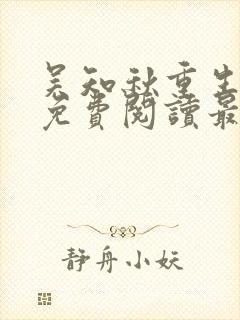 吴知秋重生
免費閱讀最
静舟小妖